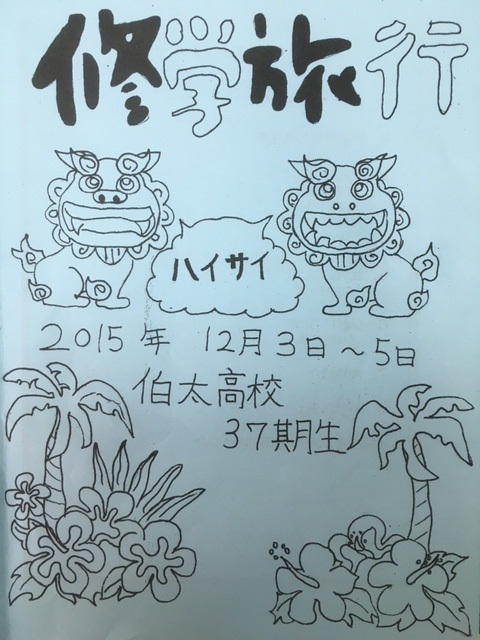 修学旅行
ハイサイ
2015年 12月3日～5日
伯太高校
37期生